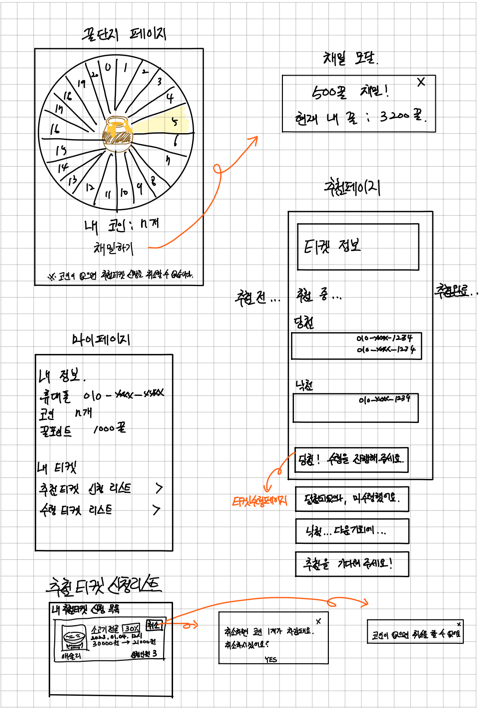 꿀단지 페이지
0 1 2 3 4 5 6 7 8 9 10 11 12 13 14 15 16 17 18 19 20
내 코인 : n개
채밀하기
※ 코인이 없으면 추첨티켓 신청을 취소할 수 없습니다.
채밀 모달.
X
500꿀 채밀!
현재 내 꿀 : 3200꿀.
추첨페이지
티켓 정보
추첨 전... 추첨 중... 추첨완료...
당첨
010-xxxx-1234
010-xxxx-1234
낙첨
010-xxxx-1234
당첨! 수령을 진행해주세요.
티켓수령페이지
당첨되었으나, 미수령했어요.
낙첨... 다음기회에...
추첨을 기다려주세요!
마이페이지
내 정보.
휴대폰 010-xxxx-xxxx
코인 n개
꿀포인트 1000꿀
내 티켓
추첨티켓 신청 리스트 >
수령 티켓 리스트 >
추첨 티켓 신청리스트
내 추첨티켓 신청 목록
30% 취소
30000원 → 21000원
신청인원 3
X
취소하면 코인 1개가 차감돼요.
취소하시겠어요?
YES
X
코인이 없으면 취소를 할 수 없어요